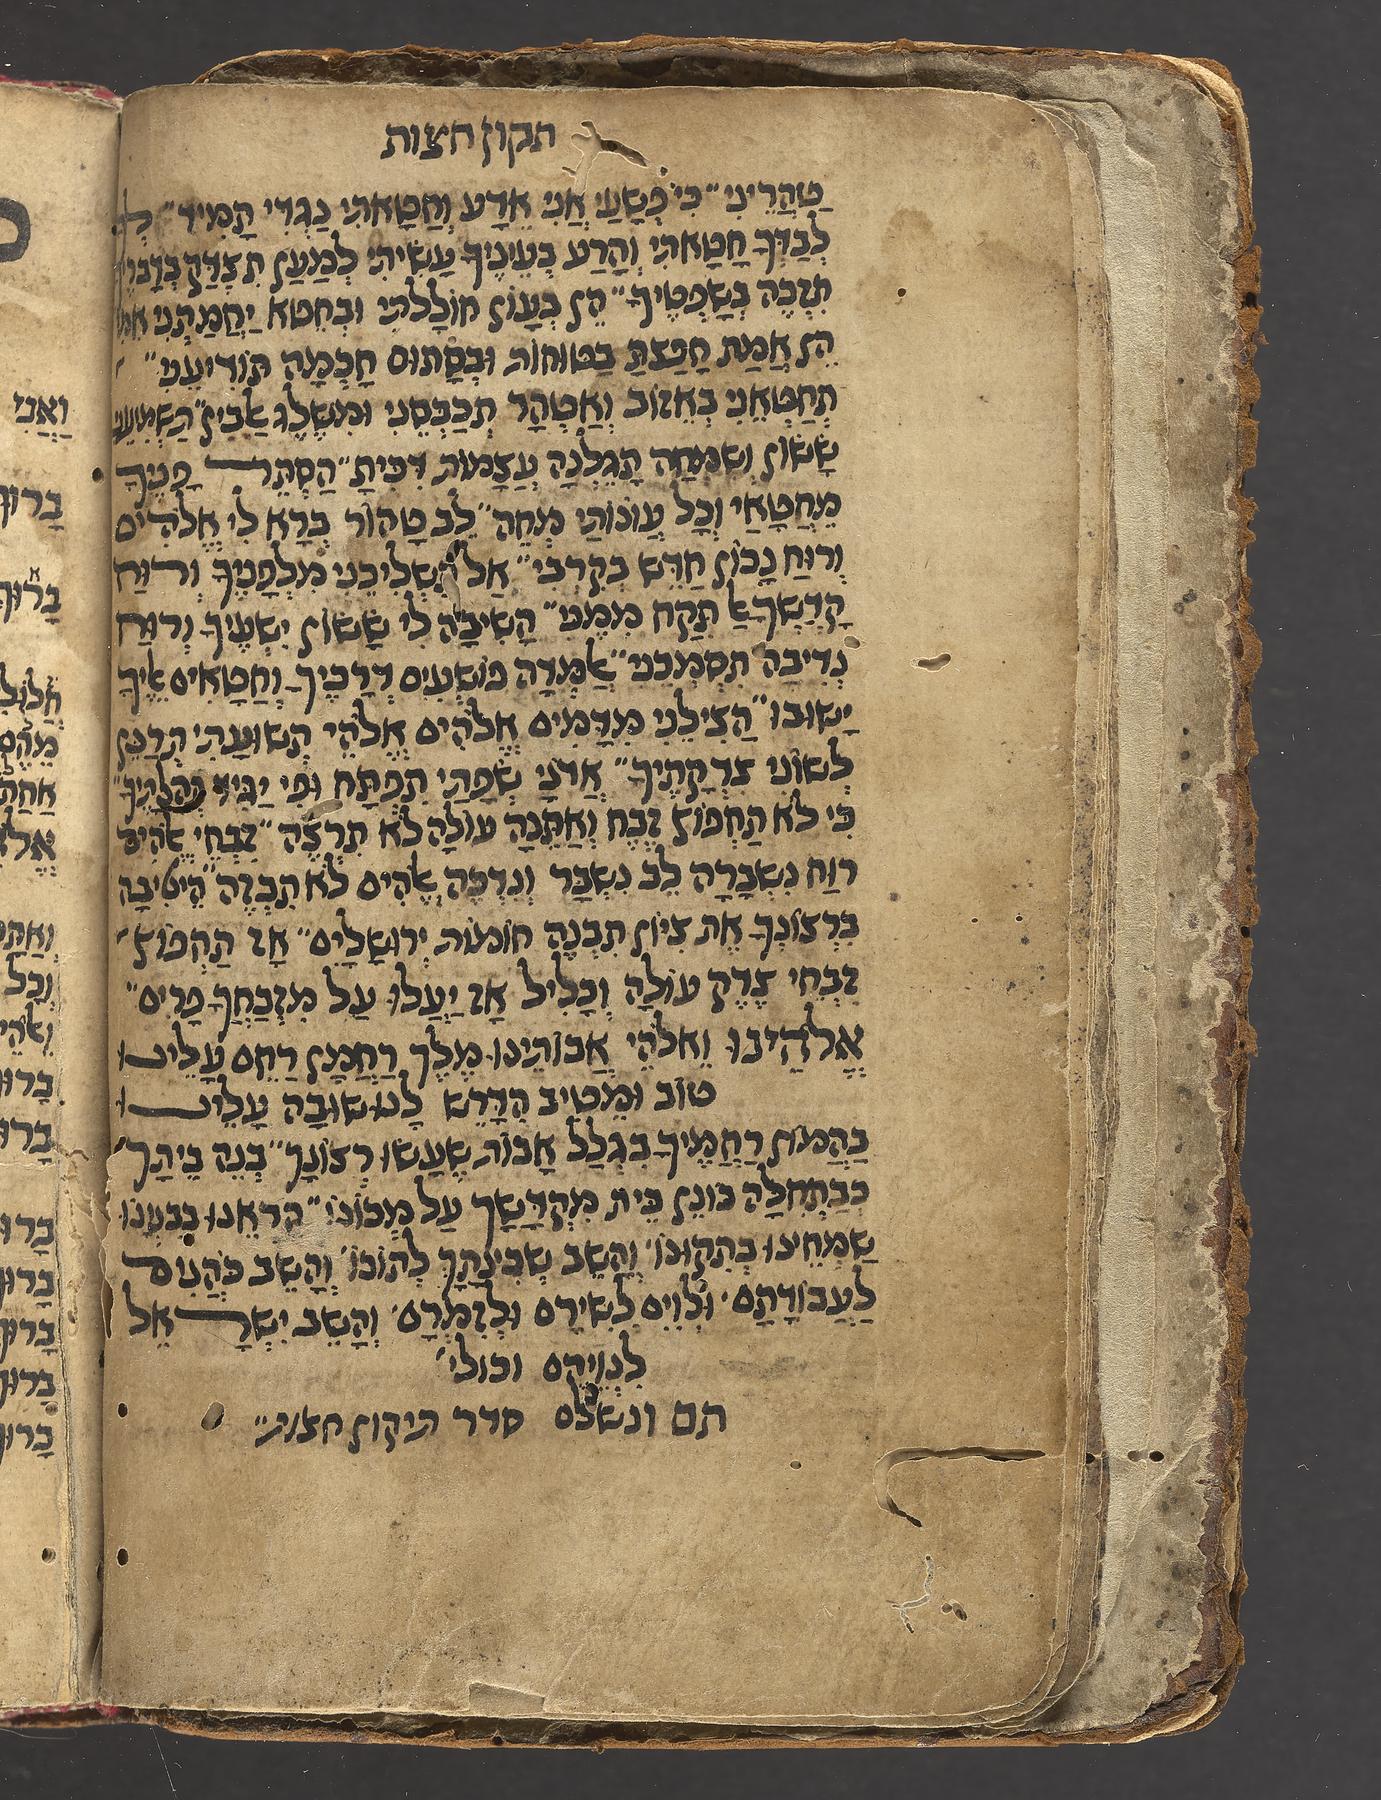 תקון חצות
טַהֲרֵינִי״ כִּי פְשָׁעַי אֲנִי אֵדָע וְחַטָּאתִי נֶגְדִּי תָמִיד״ לְךָ
לְבַדְּךָ חָטָאתִי וְהָרַע בְּעֵינֶיךָ עָשִׂיתִי לְמַעַן תִּצְדַּק בְּדָבְרֶךָ
תִּזְכֶּה בְשָׁפְטֶיךָ״ הֵן בְּעָוֹן חוֹלָלְתִּי וּבְחֵטְא יֶחֱמַתְנִי אִמִּי
הֵן אֱמֶת חָפַצְתָּ בַטּוּחוֹת וּבְסָתוּם חָכְמָה תּוֹדִיעֵנִי״
תְּחַטְּאֵנִי בְאֵזוֹב וְאֶטְהָר תְּכַבְּסֵנִי וּמִשֶּׁלֶג אַלְבִּין״ תַּשְׁמִיעֵנִי
שָׂשׂוֹן וְשִׂמְחָה תָּגֵלְנָה עֲצָמוֹת דִּכִּיתָ״ הַסְתֵּר פָּנֶיךָ
מֵחֲטָאַי וְכָל עֲוֹנוֹתַי מְחֵה״ לֵב טָהוֹר בְּרָא לִי אֱלֹהִים
וְרוּחַ נָכוֹן חַדֵּשׁ בְּקִרְבִּי״ אַל תַּשְׁלִיכֵנִי מִלְּפָנֶיךָ וְרוּחַ
קָדְשְׁךָ אַל תִּקַּח מִמֶּנִּי״ הָשִׁיבָה לִי שָׂשׂוֹן יִשְׁעֶיךָ וְרוּחַ
נְדִיבָה תִסְמְכֵנִי״ אֲלַמְּדָה פוֹשְׁעִים דְּרָכֶיךָ וְחַטָּאִים אֵלֶיךָ
יָשׁוּבוּ״ הַצִּילֵנִי מִדָּמִים אֱלֹהִים אֱלֹהֵי תְּשׁוּעָתִי תְּרַנֵּן
לְשׁוֹנִי צִדְקָתֶיךָ״ אֲדֹנָי שְׂפָתַי תִּפְתָּח וּפִי יַגִּיד תְּהִלָּתֶיךָ״
כִּי לֹא תַחְפּוֹץ זֶבַח וְאֶתֵּנָה עוֹלָה לֹא תִרְצֶה״ זִבְחֵי אֱלֹהִים
רוּחַ נִשְׁבָּרָה לֵב נִשְׁבַּר וְנִדְכֶּה אֱלֹהִים לֹא תִבְזֶה״ הֵיטִיבָה
בִרְצוֹנְךָ אֶת צִיּוֹן תִּבְנֶה חוֹמוֹת יְרוּשָׁלָיִם״ אָז תַּחְפּוֹץ
זִבְחֵי צֶדֶק עוֹלָה וְכָלִיל אָז יַעֲלוּ עַל מִזְבַּחֲךָ פָרִים״
אֱלֹהֵינוּ וֵאלֹהֵי אֲבוֹתֵינוּ מֶלֶךְ רַחֲמָן רַחֵם עָלֵינוּ
טוֹב וּמֵטִיב הִדָּרֶשׁ לָנוּ שׁוּבָה עָלֵינוּ
בַּהֲמוֹן רַחֲמֶיךָ בִּגְלַל אָבוֹת שֶׁעָשׂוּ רְצוֹנֶךָ״ בְּנֵה בֵיתְךָ
כְּבַתְּחִלָּה כּוֹנֵן בֵּית מִקְדָּשְׁךָ עַל מְכוֹנוֹ״ הַרְאֵנוּ בְּבִנְיָנוֹ
שַׂמְּחֵינוּ בְּתִקּוּנוֹ׳ וְהָשֵׁב שְׁכִינָתְךָ לְתוֹכוֹ׳ וְהָשֵׁב כֹּהֲנִים
לַעֲבוֹדָתָם׳ וּלְוִיִּם לְשִׁירָם וּלְזִמְרָם׳ וְהָשֵׁב יִשְׂרָאֵל
לִנְוֵיהֶם וכולי׳
תם ונשלם סדר תיקון חצות״